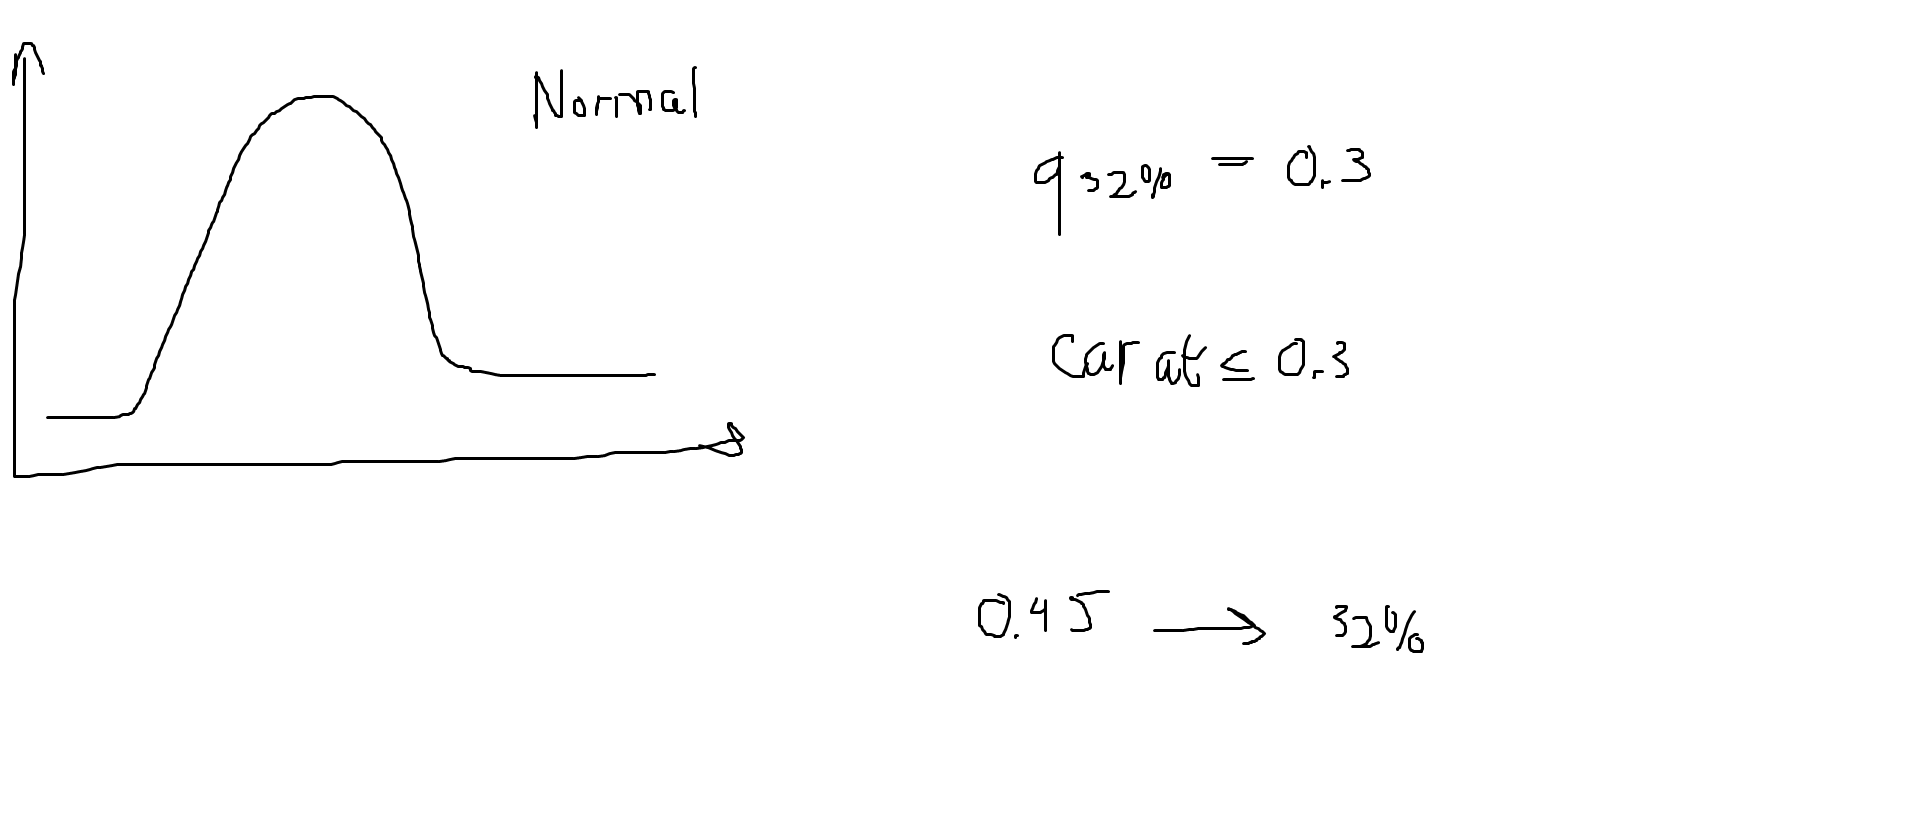 Normal
q32% = 0.3
carat ≤ 0.3
0.45 → 32%